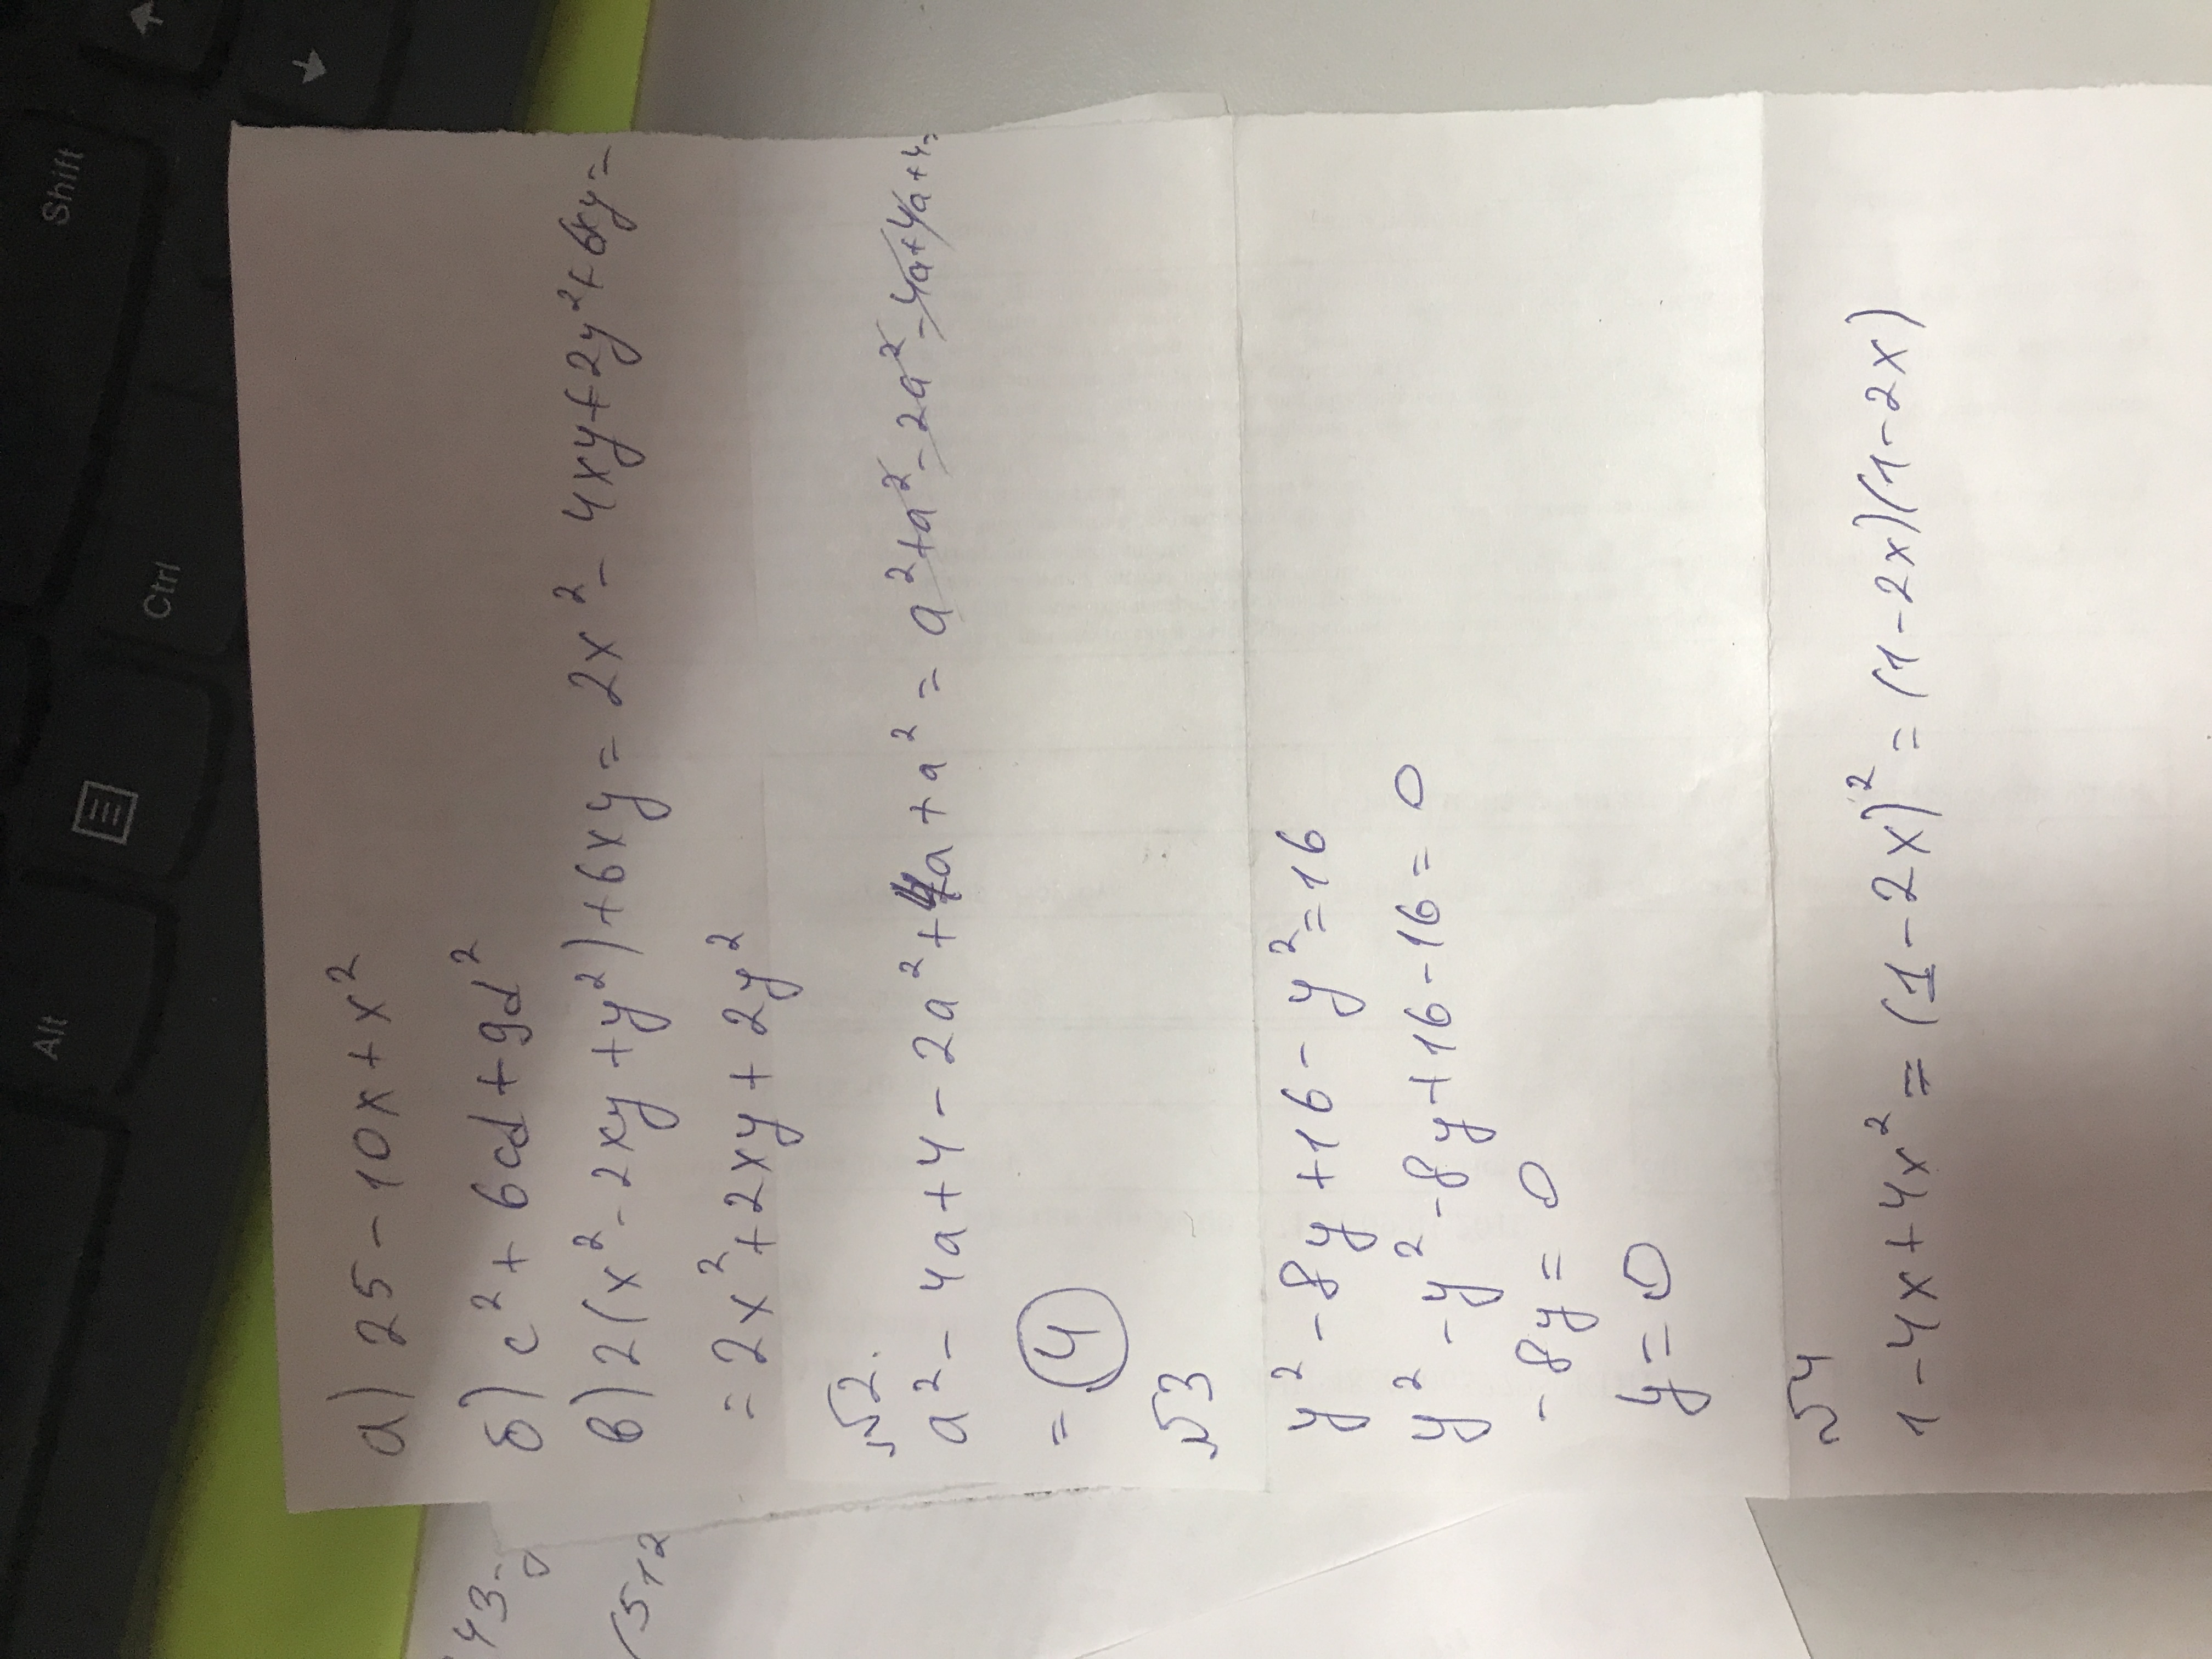 Shift
Ctrl
Alt
а) 25 - 10x + x²
б) c² + 6cd + 9d²
в) 2(x² - 2xy + y²) + 6xy = 2x² - 4xy + 2y² + 6xy =
= 2x² + 2xy + 2y²
№2.
a² - 4a + 4 - 2a² + 4a + a² = a² + a² - 2a² - 4a + 4a + 4 =
= 4
№3
y² - 8y + 16 - y² = 16
y² - y² - 8y + 16 - 16 = 0
- 8y = 0
y = 0
№4
1 - 4x + 4x² = (1 - 2x)² = (1 - 2x)(1 - 2x)